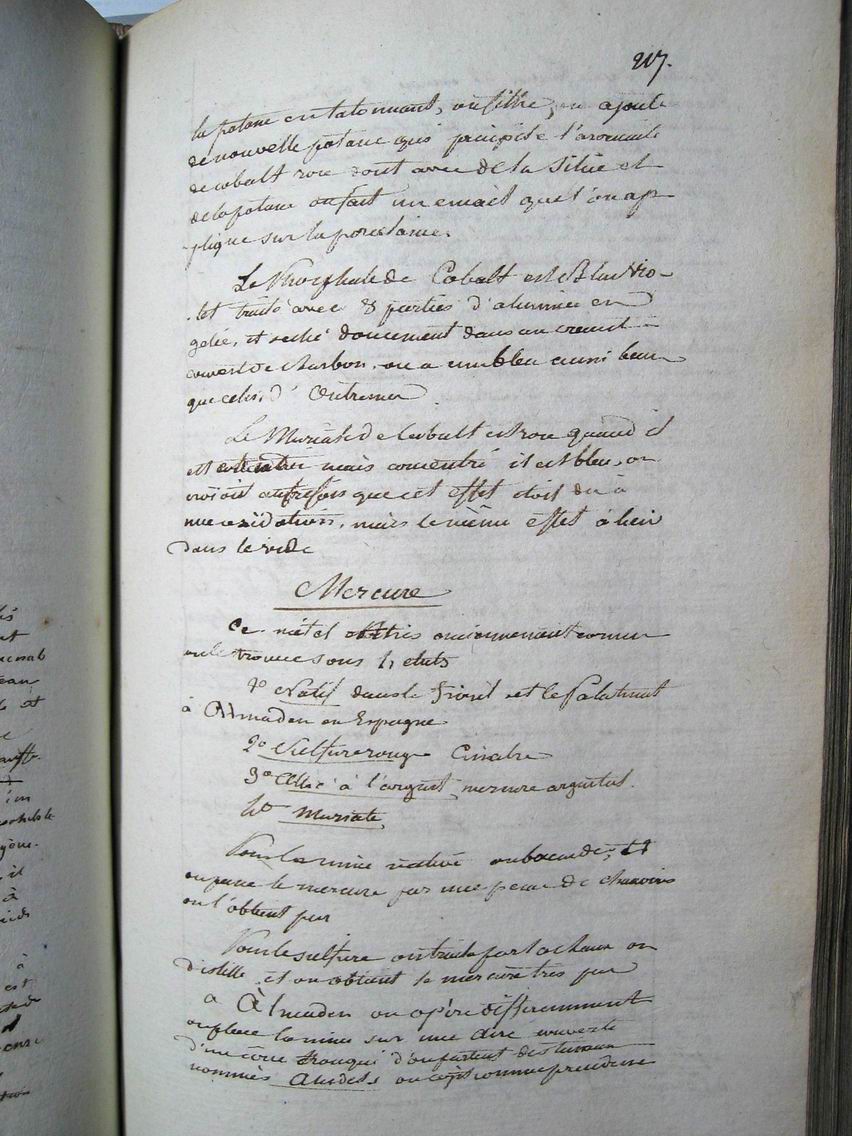 217.
la potasse en tatonnant, on filtre, on ajoute
de nouvelle potasse qui précipite l'arseniate
de cobalt rose dont avec de la silice et
de la potasse on fait un émail que l'on ap-
plique sur la porcelaine.
Le Phosphate de Cobalt est Bleu Vio-
let traité avec 8 parties d'alumine en
gelée, et seché doucement dans un creuset
couvert de charbon, on a un bleu aussi beau
que celui d'Outremer
Le Muriate de Cobalt est rose quand il
est mais concentré il est bleu, on
croioit autrefois que cet effet etoit du à
une oxidation, mais le même effet à lieu
dans le vide
Mercure
Ce métal est très anciennement connu
on le trouve sous 4 etats
1º Natif dans le Frioul et le Palatinat
à Almaden en Espagne
2º Sulfure rouge Cinabre
3º Allié à l'argent, mercure argental.
4º Muriate
Pour la mine native on et
on passe le mercure par une peau de chamois
on l'obtient pur
Pour le sulfure on traite par la chaux on
distille, et on obtient le mercure très pur
a Almaden on opère differemment
on place la mine sur une aire couverte
d'un cone tronqué d'ou partent des tuyaux
nommés Aludels